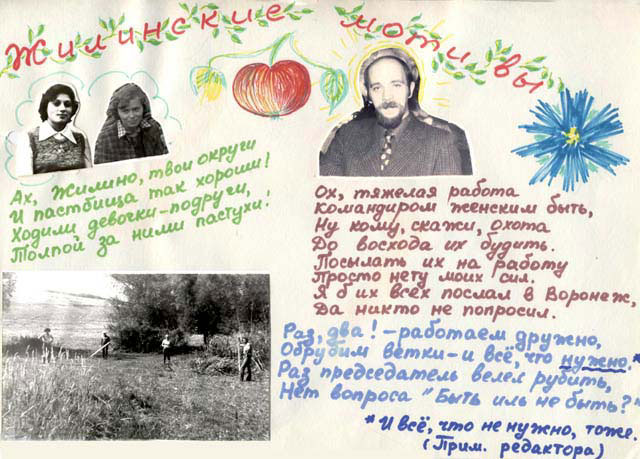 Жилинские мотивы
Ах, Жилино, твои округи
И пастбища так хороши!
Ходили девочки-подруги,
Толпой за ними пастухи!
Ох, тяжелая работа
Командиром женским быть,
Ну кому, скажи, охота
До восхода их будить.
Посылать их на работу
Просто нету моих сил.
Я б их всех послал в Воронеж.
Да никто не попросил.
Раз, два! – работаем дружно,
Обрубим ветки – и всё, что нужно.*
Раз председатель велел рубить,
Нет вопроса "Быть иль не быть?"
* И всё, что не нужно, тоже.
(Прим. редактора)